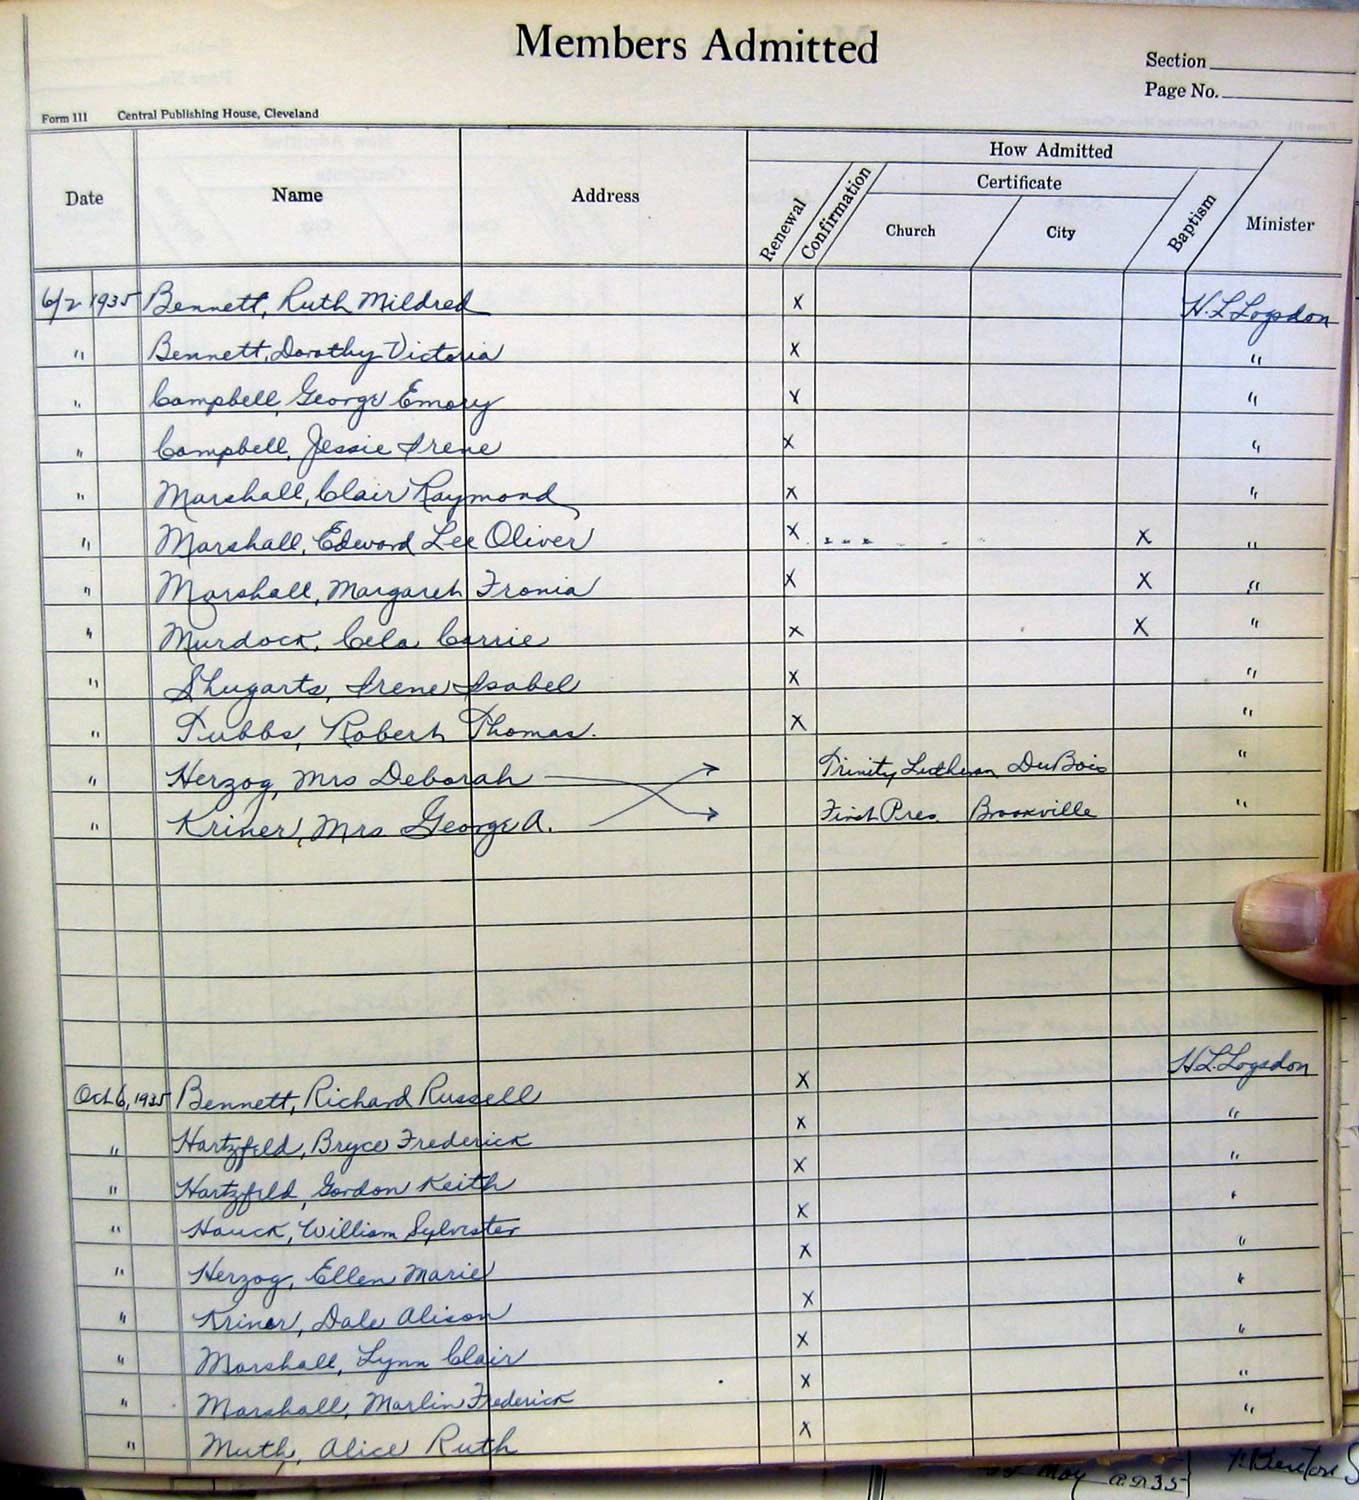 Members Admitted
Section
Page No.
Form 111 Central Publishing House, Cleveland
How Admitted
Certificate
Date Name Address Renewal Confirmation Church City Baptism Minister
6/2 1935 Bennett, Ruth Mildred x H. L. Logsdon
" Bennett, Dorothy Victoria x "
" Campbell, George Emory x "
" Campbell, Jessie Irene x "
" Marshall, Clair Raymond x "
" Marshall, Edward Lee Oliver x x "
" Marshall, Margaret Fronia x x "
" Murdock, Cela Carrie x x "
" Shugarts, Irene Isabel x "
" Tubbs, Robert Thomas. x "
" Herzog, Mrs Deborah Trinity Lutheran DuBois "
" Kriner, Mrs George A. First Pres. Brookville "
Oct 6, 1935 Bennett, Richard Russell x H. L. Logsdon
" Hartzfeld, Bryce Frederick x "
" Hartzfeld, Gordon Keith x "
" Hauck, William Sylvester x "
" Herzog, Ellen Marie x "
" Kriner, Dale Alison x "
" Marshall, Lynn Clair x "
" Marshall, Marlin Frederick x "
" Muth, Alice Ruth x "
May A.D. 35